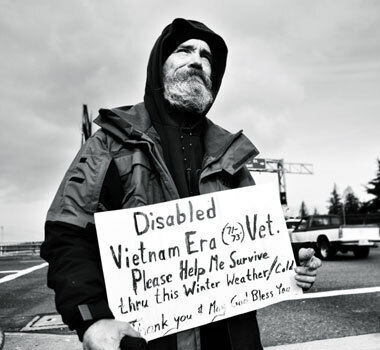 Disabled
Vietnam Era (71-73) Vet.
Please Help Me Survive
thru this Winter Weather/Cold
Thank you & May God Bless You